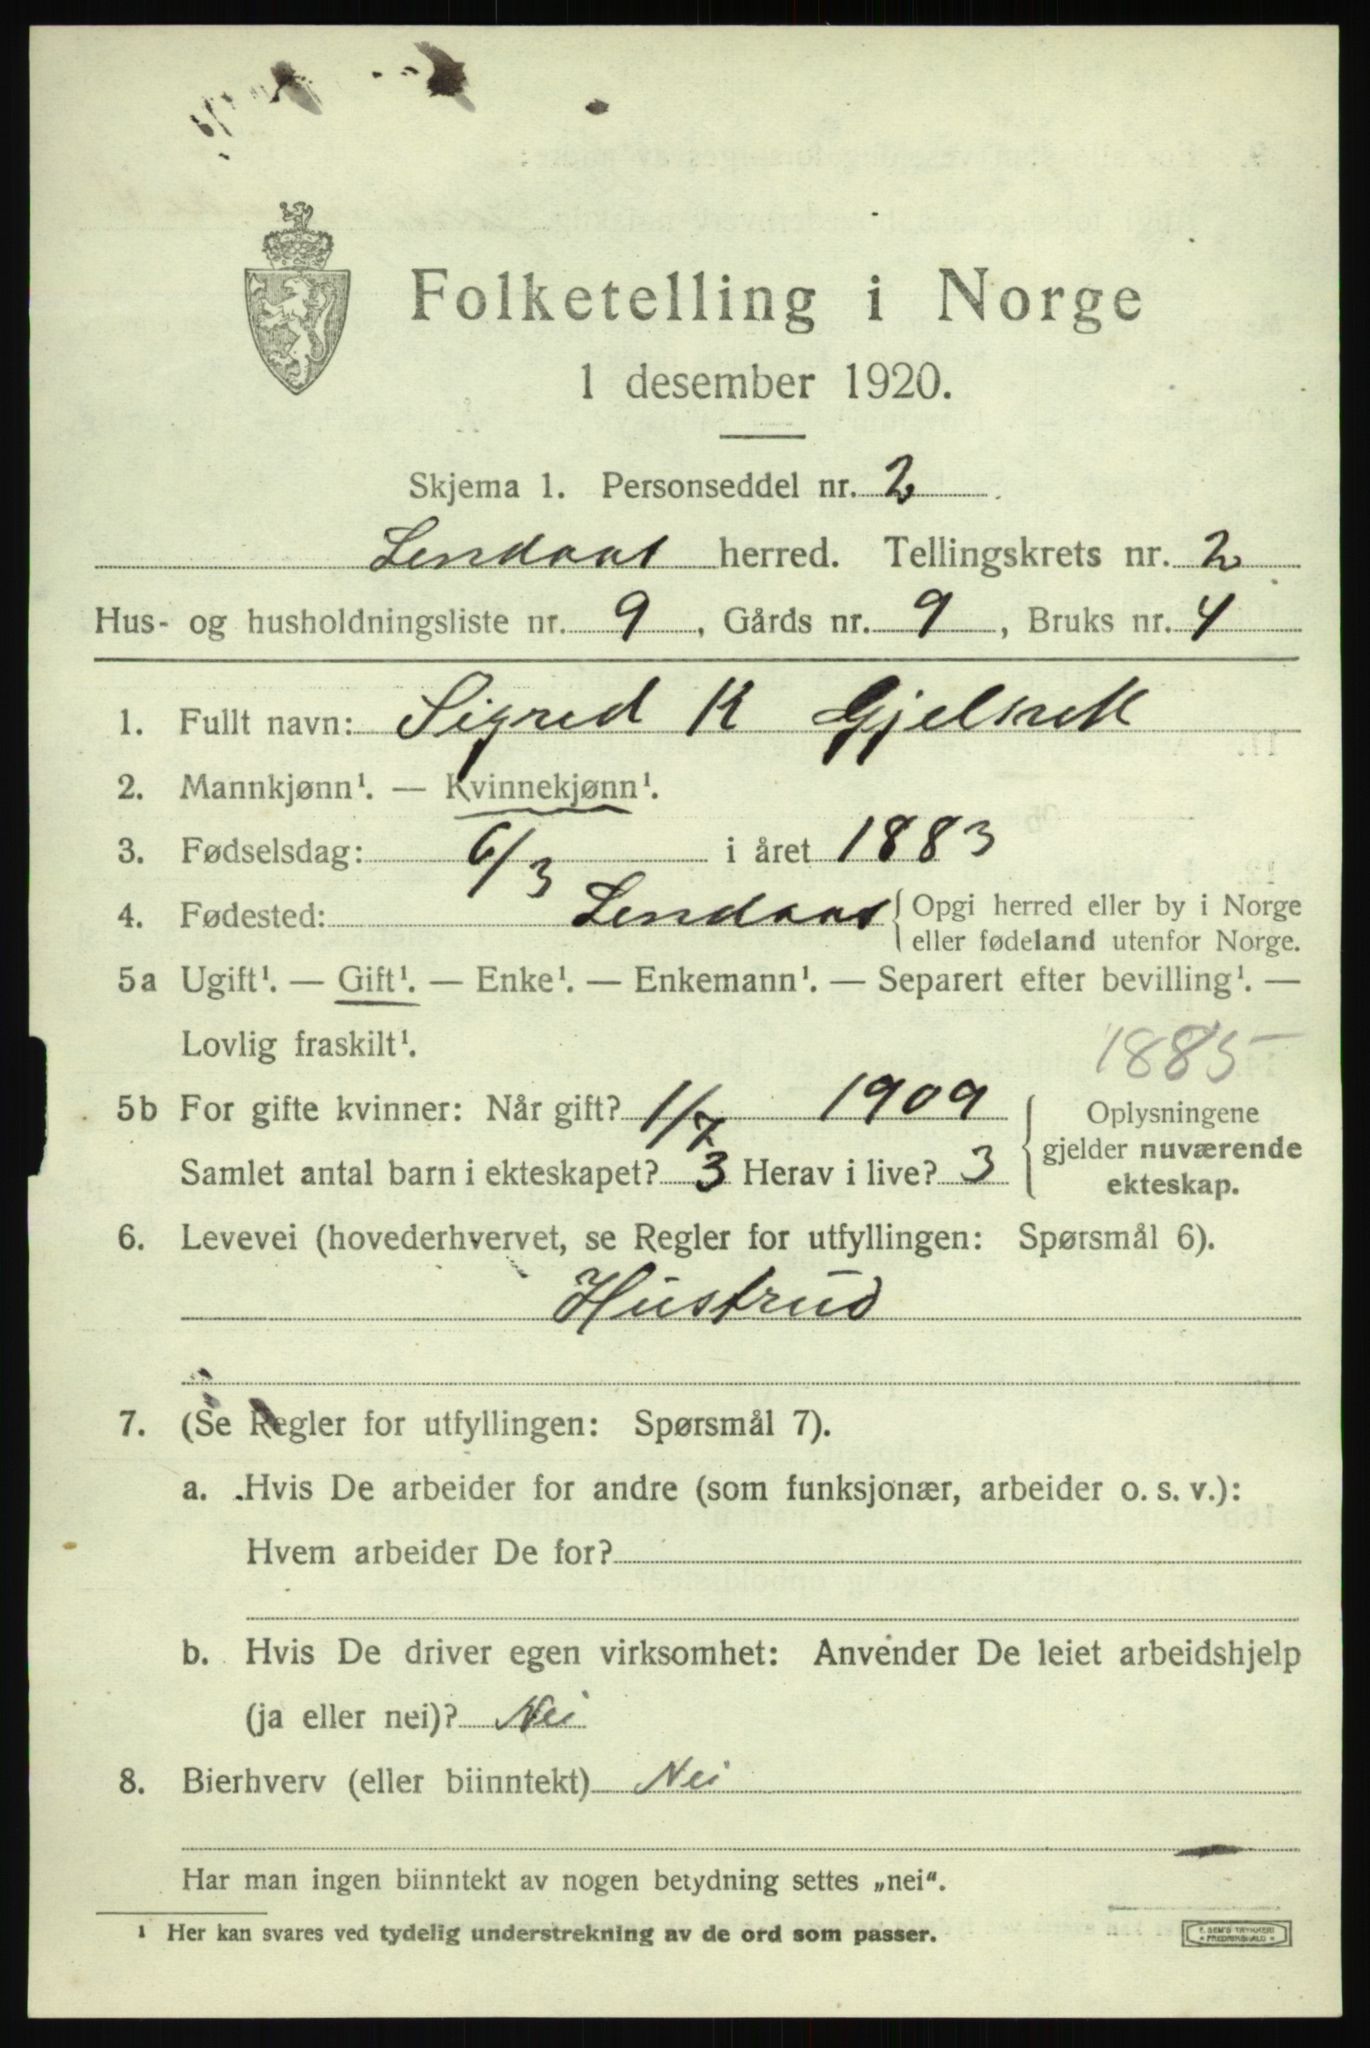 Folketelling i Norge
1 desember 1920.
Skjema 1. Personseddel nr. 2
Lendaas herred. Tellingskrets nr. 2
Hus- og husholdningsliste nr. 9, Gårds nr. 9, Bruks nr. 4
1. Fullt navn: Sigred K Gjelsvik
2. Mannkjønn¹. — Kvinnekjønn¹.
3. Fødselsdag: 6/3 i året 1883
4. Fødested: Lendaas {Opgi herred eller by i Norge
eller fødeland utenfor Norge.
5a Ugift¹. — Gift¹. — Enke¹. — Enkemann¹. — Separert efter bevilling¹. —
Lovlig fraskilt¹.
1885
5b For gifte kvinner: Når gift? 1/7 1909
Samlet antal barn i ekteskapet? 3 Herav i live? 3
{Oplysningene
gjelder nuværende
ekteskap.
6. Levevei (hovederhvervet, se Regler for utfyllingen: Spørsmål 6).
Hustrud
7. (Se Regler for utfyllingen: Spørsmål 7).
a. Hvis De arbeider for andre (som funksjonær, arbeider o. s. v.):
Hvem arbeider De for?
b. Hvis De driver egen virksomhet: Anvender De leiet arbeidshjelp
(ja eller nei)? Nei
8. Bierhverv (eller biinntekt) Nei
Har man ingen biinntekt av nogen betydning settes „nei“.
¹ Her kan svares ved tydelig understrekning av de ord som passer.